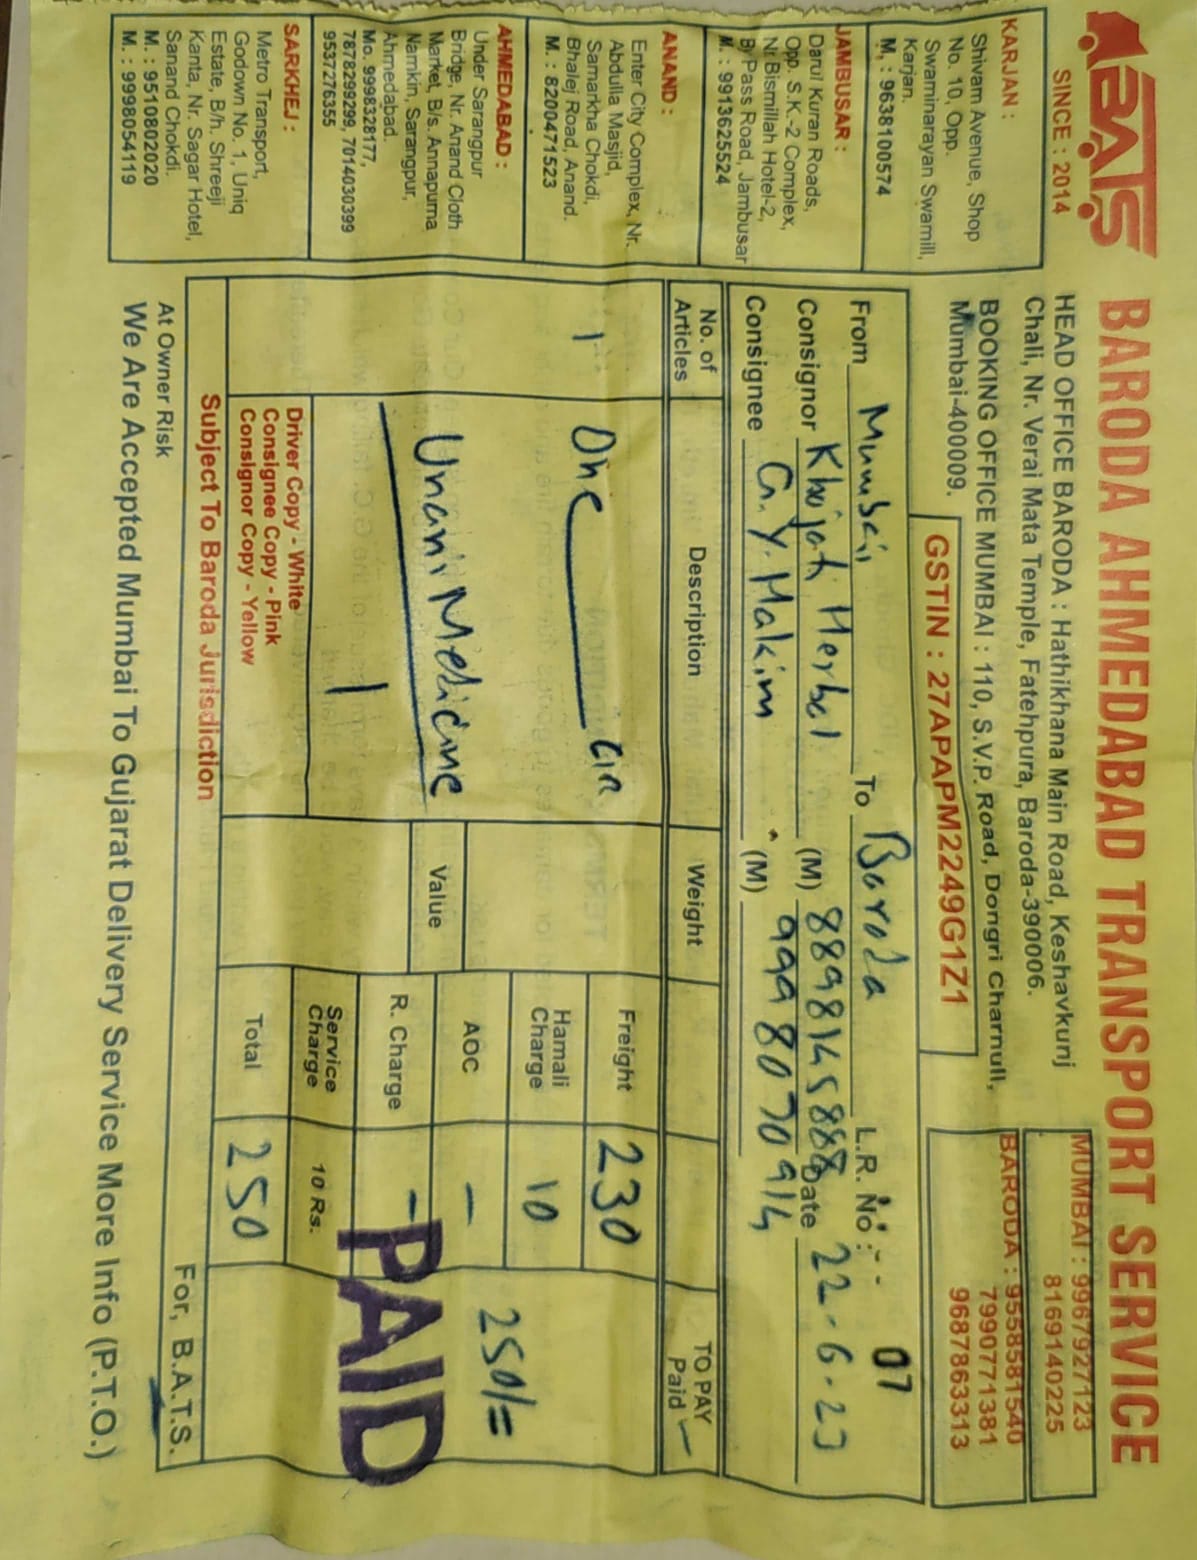 BATS
SINCE : 2014
BARODA AHMEDABAD TRANSPORT SERVICE
HEAD OFFICE BARODA : Hathikhana Main Road, Keshavkunj
Chali, Nr. Verai Mata Temple, Fatehpura, Baroda-390006.
BOOKING OFFICE MUMBAI : 110, S.V.P. Road, Dongri Charnull,
Mumbai-400009.
GSTIN : 27APAPM2249G1Z1
MUMBAI : 9967927123
8169140225
BARODA : 9558581540
7990771381
9687863313
KARJAN :
Shivam Avenue, Shop
No. 10, Opp.
Swaminarayan Swamill,
Karjan.
M. : 9638100574
JAMBUSAR :
Darul Kuran Roads,
Opp. S.K.-2 Complex,
Nr. Bismillah Hotel-2,
By Pass Road, Jambusar
M. : 9913625524
ANAND :
Enter City Complex, Nr.
Abdulla Masjid,
Samarkha Chokdi,
Bhalej Road, Anand.
M. : 8200471523
AHMEDABAD :
Under Sarangpur
Bridge, Nr. Anand Cloth
Market, B/s. Annapurna
Namkin, Sarangpur,
Ahmedabad.
Mo. 9998328177,
7878299299, 7014030399
9537276355
SARKHEJ :
Metro Transport,
Godown No. 1, Uniq
Estate, B/h. Shreeji
Kanta, Nr. Sagar Hotel,
Sanand Chokdi.
M. : 9510802020
M. : 9998054119
From Mumbai To Baroda L.R. No :- 07
Consignor Khojati Herbal (M) 8898145888 Date 22-6-23
Consignee G.Y. Hakim (M) 9998070914
No. of Articles Description Weight TO PAY Paid
1 One Ctn
Unani Medicine
1
Value
Freight 230
Hamali Charge 10
AOC -
R. Charge -
Service Charge 10 Rs.
Total 250
250/=
PAID
Driver Copy - White
Consignee Copy - Pink
Consignor Copy - Yellow
Subject To Baroda Jurisdiction
At Owner Risk
For, B.A.T.S.
We Are Accepted Mumbai To Gujarat Delivery Service More Info (P.T.O.)